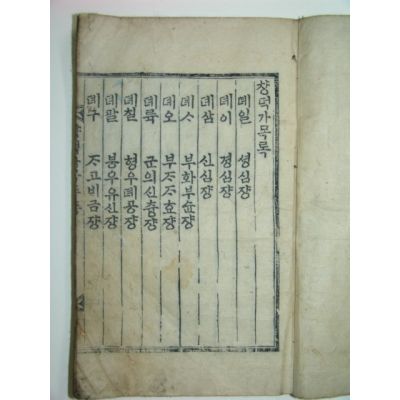 창덕가목록
뎨일 셩심쟝
뎨이 경심쟝
뎨삼 신심쟝
뎨ᄉ 부화부슌쟝
뎨오 부ᄌᄌ효쟝
뎨륙 군의신츙쟝
뎨칠 형우뎨공쟝
뎨팔 붕우유신쟝
뎨구 ᄌ고비금쟝